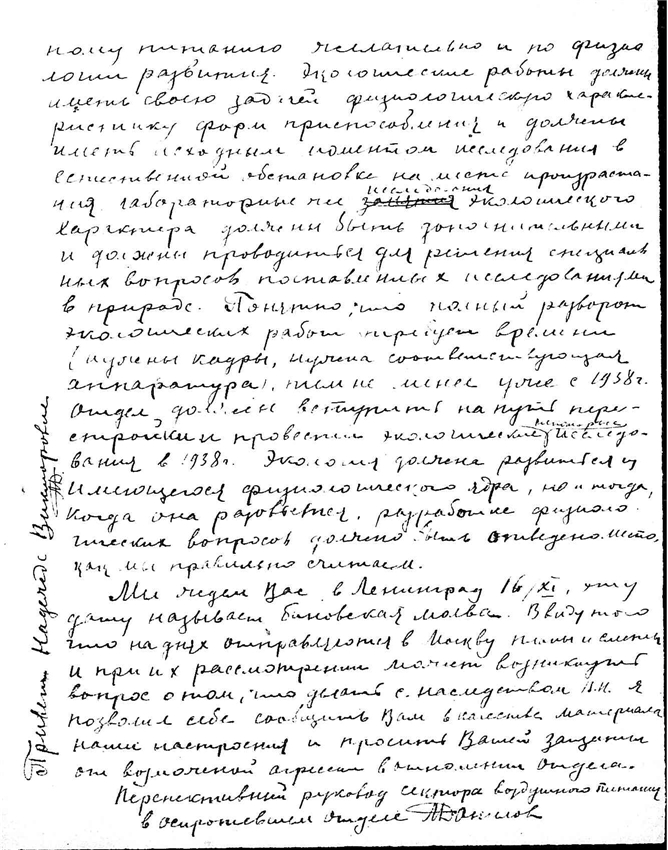 ному питанию желательно и по физио
логии развития. Экологические работы должны
иметь своею задачей физиологическую характе-
ристику форм приспособления и должны
иметь исходным моментом исследования в
естественной обстановке на месте произраста-
ния, лабораторные же исследования экологического
характера должны быть дополнительными
и должны проводиться для решения специаль
ных вопросов поставленных исследованиями
в природе. Понятно, что полный разворот
экологических работ требует времени
(нужны кадры, нужна соответствующая
аппаратура), тем не менее уже с 1938г.
отдел должен вступить на путь пере-
стройки и провести экологические исследо-
вания в 1938г. Экология должна развиться из
имеющегося физиологического ядра, но и тогда,
когда она разовьется, разработке физиоло
гических вопросов должно быть отведено место,
как мы правильно считаем.
Мы ждем Вас в Ленинград 16/XI, эту
дату называет биновская молва. Ввиду того
что на днях отправляются в Москву планы и сметы
и при их рассмотрении может возникнуть
вопрос о том, что делать с наследством Н.Н. Я
позволил себе сообщить Вам в качестве материала
наши настроения и просить Вашей защиты
от возможной агрессии в отношении отдела.
Перспективный руковод сектора воздушного питания
в осиротевшем отделе АДанилов
Привет Надежде Викторовне
АД